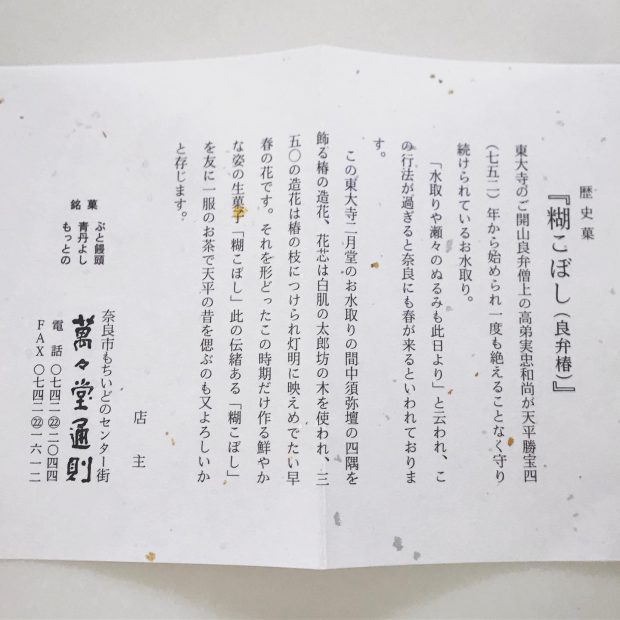 歴史菓
『糊こぼし(良弁椿)』
東大寺のご開山良弁僧上の高弟実忠和尚が天平勝宝四
(七五二)年から始められ一度も絶えることなく守り
続けられているお水取り。
「水取りや瀬々のぬるみも此日より」と云われ、こ
の行法が過ぎると奈良にも春が来るといわれておりま
す。
この東大寺二月堂のお水取りの間中須弥壇の四隅を
飾る椿の造花、花芯は白肌の太郎坊の木を使われ、三
五〇の造花は椿の枝につけられ灯明に映えめでたい早
春の花です。それを形どったこの時期だけ作る鮮やか
な姿の生菓子「糊こぼし」此の伝緒ある「糊こぼし」
を友に一服のお茶で天平の昔を偲ぶのも又よろしいか
と存じます。
店主
銘菓
ぶと饅頭
青丹よし
もっとの
奈良市もちいどのセンター街
萬々堂通則
電話 〇七四二㉒二〇四四
FAX 〇七四二㉒一六一二